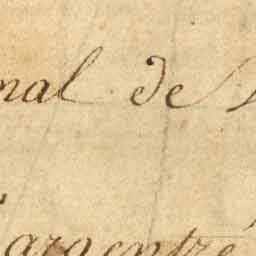 nal de
argentré